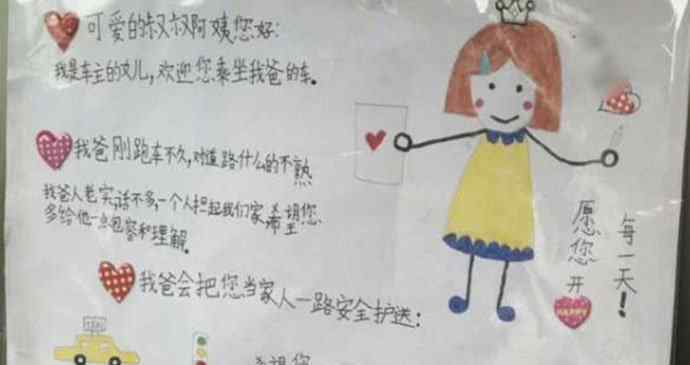 可爱的叔叔阿姨您好：
我是车主的女儿，欢迎您乘坐我爸的车。
我爸刚跑车不久，对道路什么的不熟
我爸人老实，话不多，一个人担起我们家希望您
多给他一点包容和理解。
我爸会把您当家人一路安全护送：
希望您
愿您开
HAPPY
每一天！